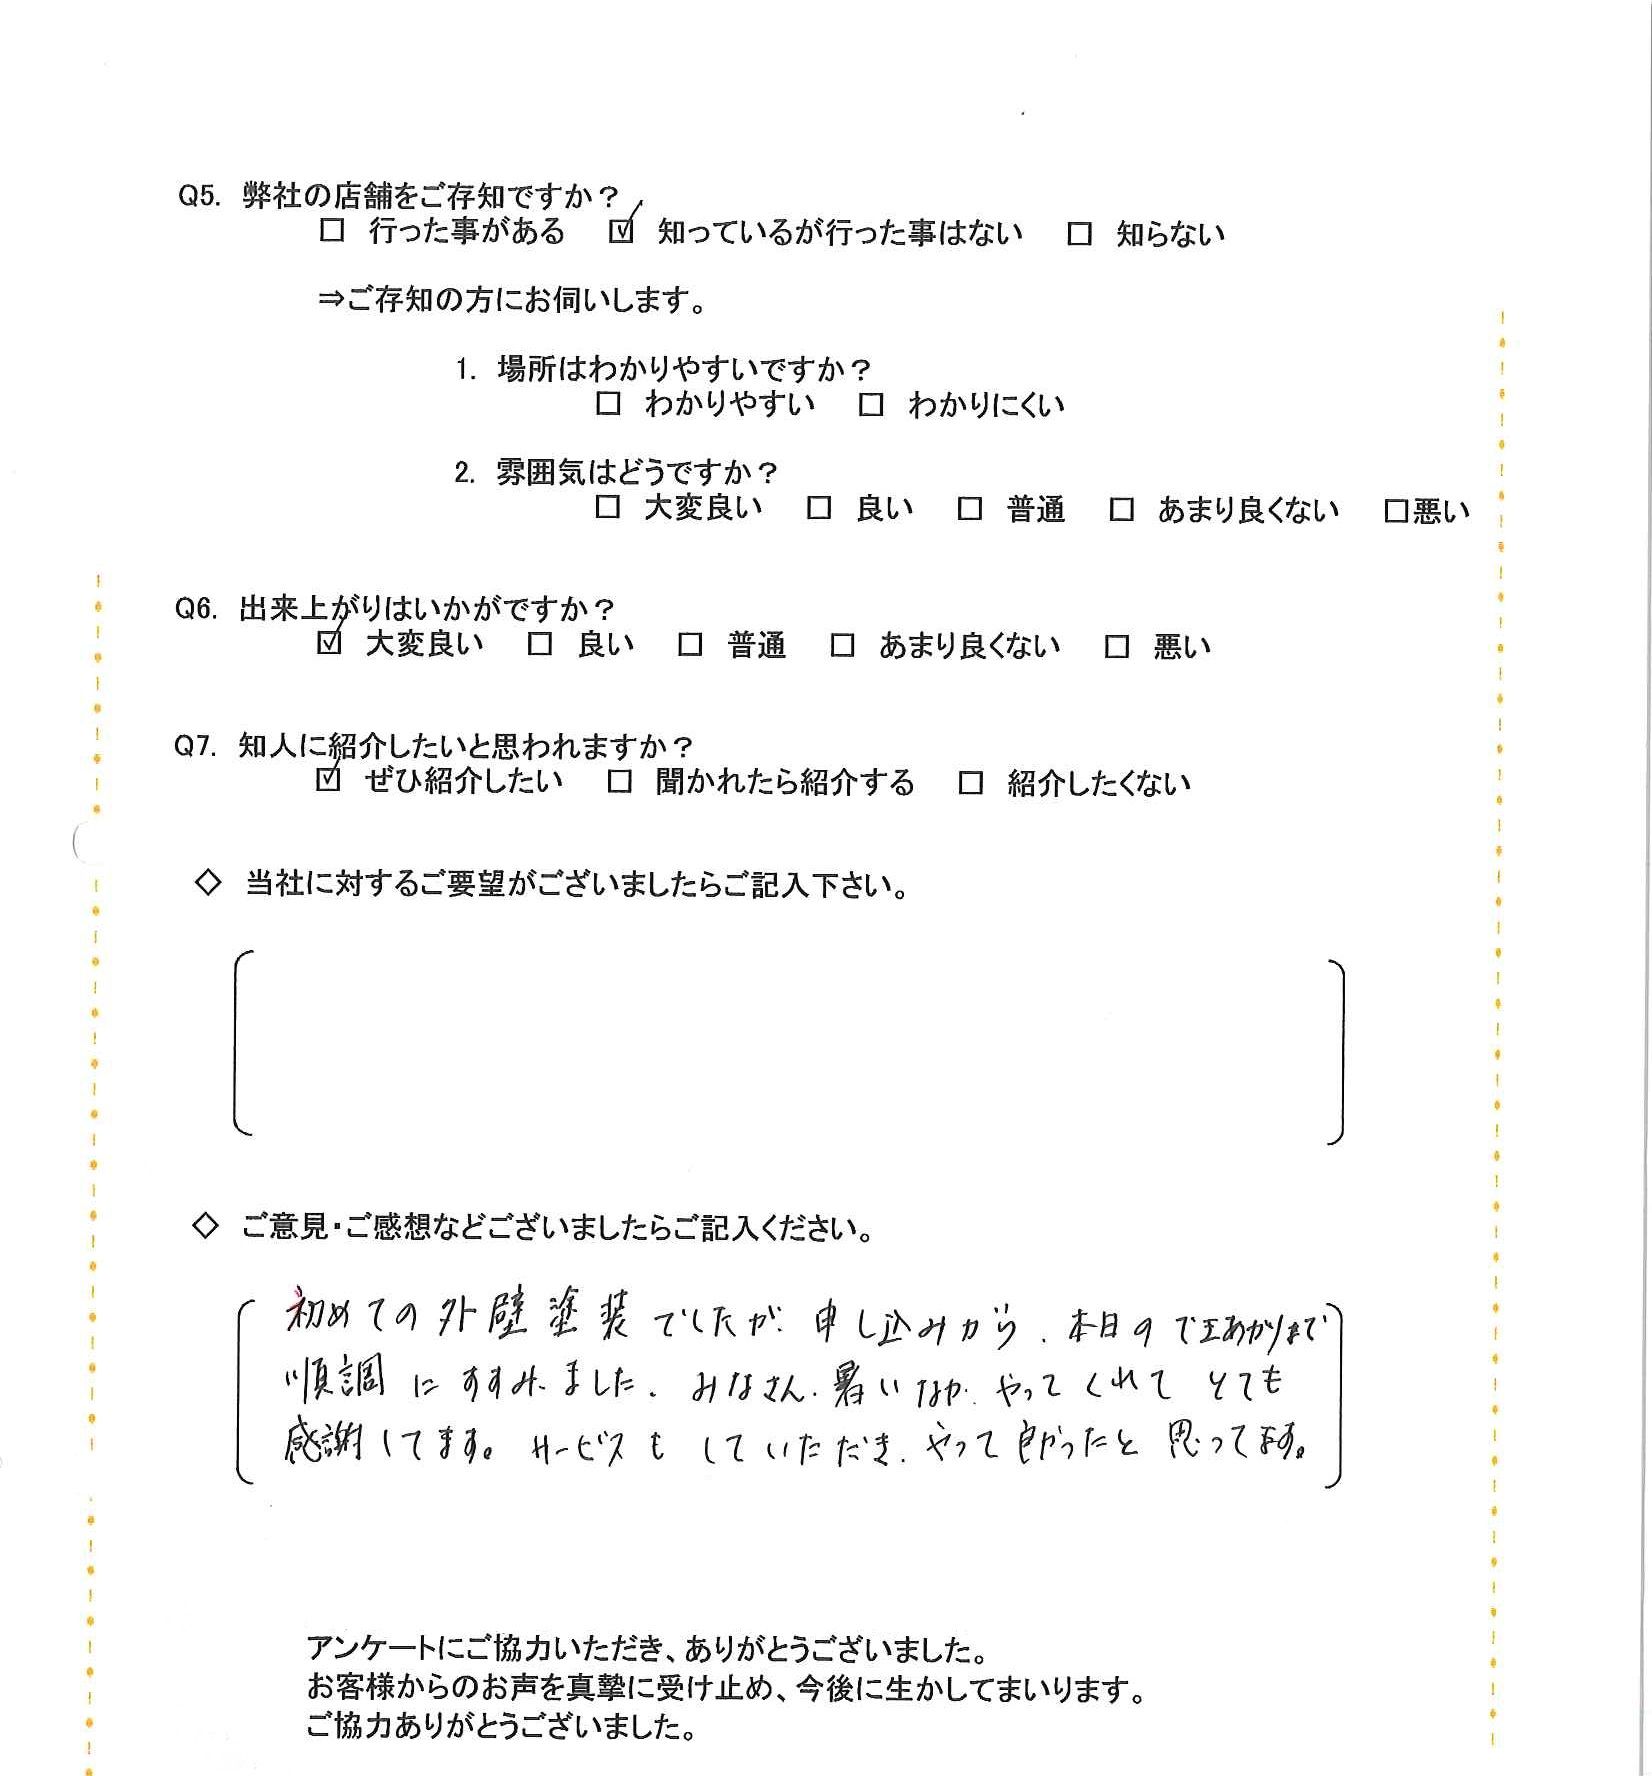 Q5. 弊社の店舗をご存知ですか？
□ 行った事がある ☑ 知っているが行った事はない □ 知らない
⇒ご存知の方にお伺いします。
1. 場所はわかりやすいですか？
□ わかりやすい □ わかりにくい
2. 雰囲気はどうですか？
□ 大変良い □ 良い □ 普通 □ あまり良くない □悪い
Q6. 出来上がりはいかがですか？
☑ 大変良い □ 良い □ 普通 □ あまり良くない □ 悪い
Q7. 知人に紹介したいと思われますか？
☑ ぜひ紹介したい □ 聞かれたら紹介する □ 紹介したくない
◇ 当社に対するご要望がございましたらご記入下さい。
◇ ご意見・ご感想などございましたらご記入ください。
初めての外壁塗装でしたが、申し込みから、本日のでまあがりまで
順調にすすみました、みなさん、暑いなか、やってくれてとても
感謝してます。サービスもしていただき、やって良かったと思ってます。
アンケートにご協力いただき、ありがとうございました。
お客様からのお声を真摯に受け止め、今後に生かしてまいります。
ご協力ありがとうございました。